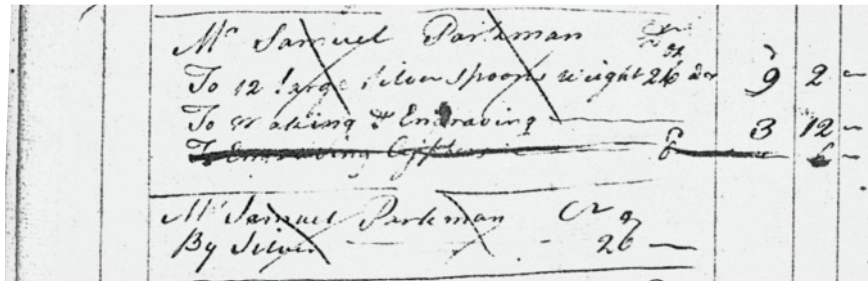 Mr Samuel Parkman Dr
oz
To 12 large silver spoons weight 26 9 2 —
To Making & Engraving — 3 12 —
To Engraving 6 —
Mr Samuel Parkman Cr
By Silver — 26 —